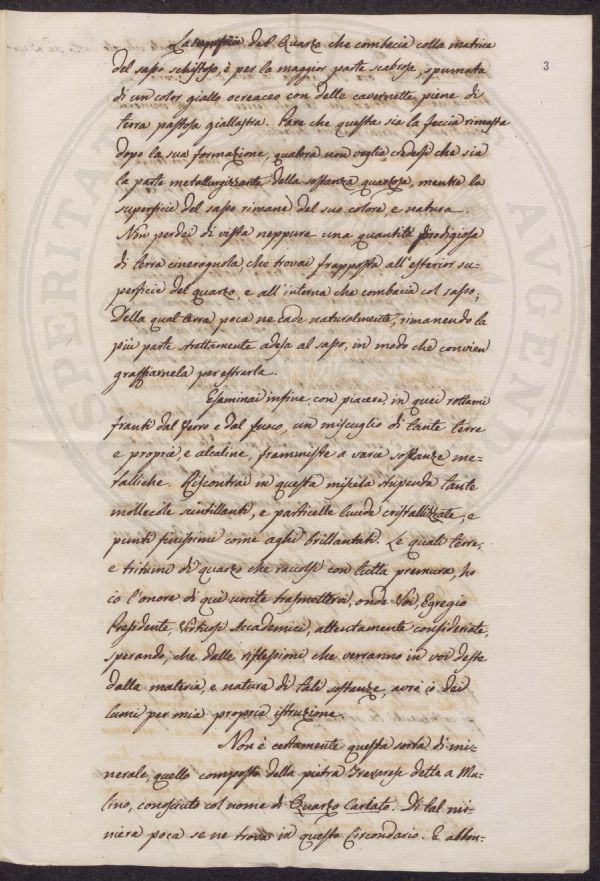 3
La superficie del Quarzo che combacia colla matrice
del sasso schistoso, è per la maggior parte scabrosa, spumata
di un color giallo ocreaceo con delle cavernette piene di
terra pastosa giallastra. Pare che questa sia la feccia rimasta
dopo la sua formazione, qualora non voglia credersi che sia
la parte metallurgizzante della sostanza quarzosa, mentre la
superficie del sasso rimane del suo colore, e natura.
Non perdei di vista neppure una quantità prodigiosa
di terra cinerognola, che trovai frapposta all'esterior su-
perficie del quarzo, e all'interna che combacia col sasso;
Della qual terra poca ne cade naturalmente, rimanendo la
più parte strettamente adesa al sasso, in modo che convien
graffiarnela per estrarla.
Esaminai infine con piacere in quei rottami
franti dal ferro e dal fuoco, un miscuglio di tante terre
e proprie, e alcaline, frammiste a varie sostanze me-
talliche. Riscontrai in questa miscela stupenda tante
mollecole scintillanti, e particelle lucide cristallizzate, e
punti finissimi come aghi brillantati. Le quali terre,
e tritumi di quarzo che raccolsi con tutta premura, ho
io l'onore di qui unite trasmettervi, onde Voi, Egregio
Presidente, Virtuosi Accademici, attentamente consideriate,
sperando, che dalle riflessioni che verranno in voi deste
dalla materia, e natura di tali sostanze, avrò io dei
lumi per mia propria istruzione.
Non è certamente questa sorta di mi-
nerale, quello composto della pietra Travarese detta a Mu-
lino, conosciuto col nome di Quarzo Cariato. Di tal mi-
niera poca se ne trova in questo Circondario. E abbon-